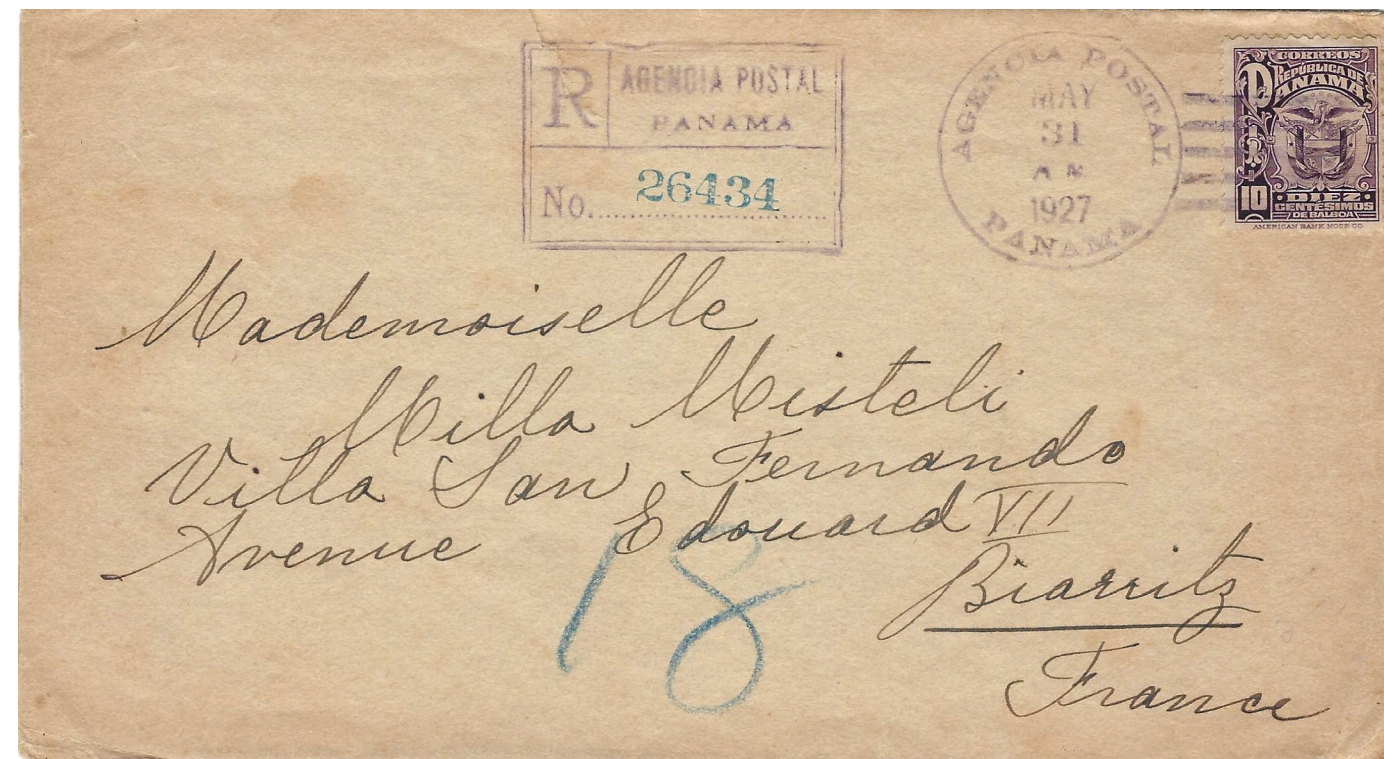 R AGENCIA POSTAL
PANAMA
No. 26434
AGENCIA POSTAL
MAY
31
AM
1927
PANAMA
CORREOS
REPÚBLICA DE
PANAMA
10 DIEZ
CENTESIMOS
DE BALBOA
AMERICAN BANK NOTE CO.
Mademoiselle
Milla Misteli
Villa San Fernando
Avenue Edouard VII
18
Biarritz
France